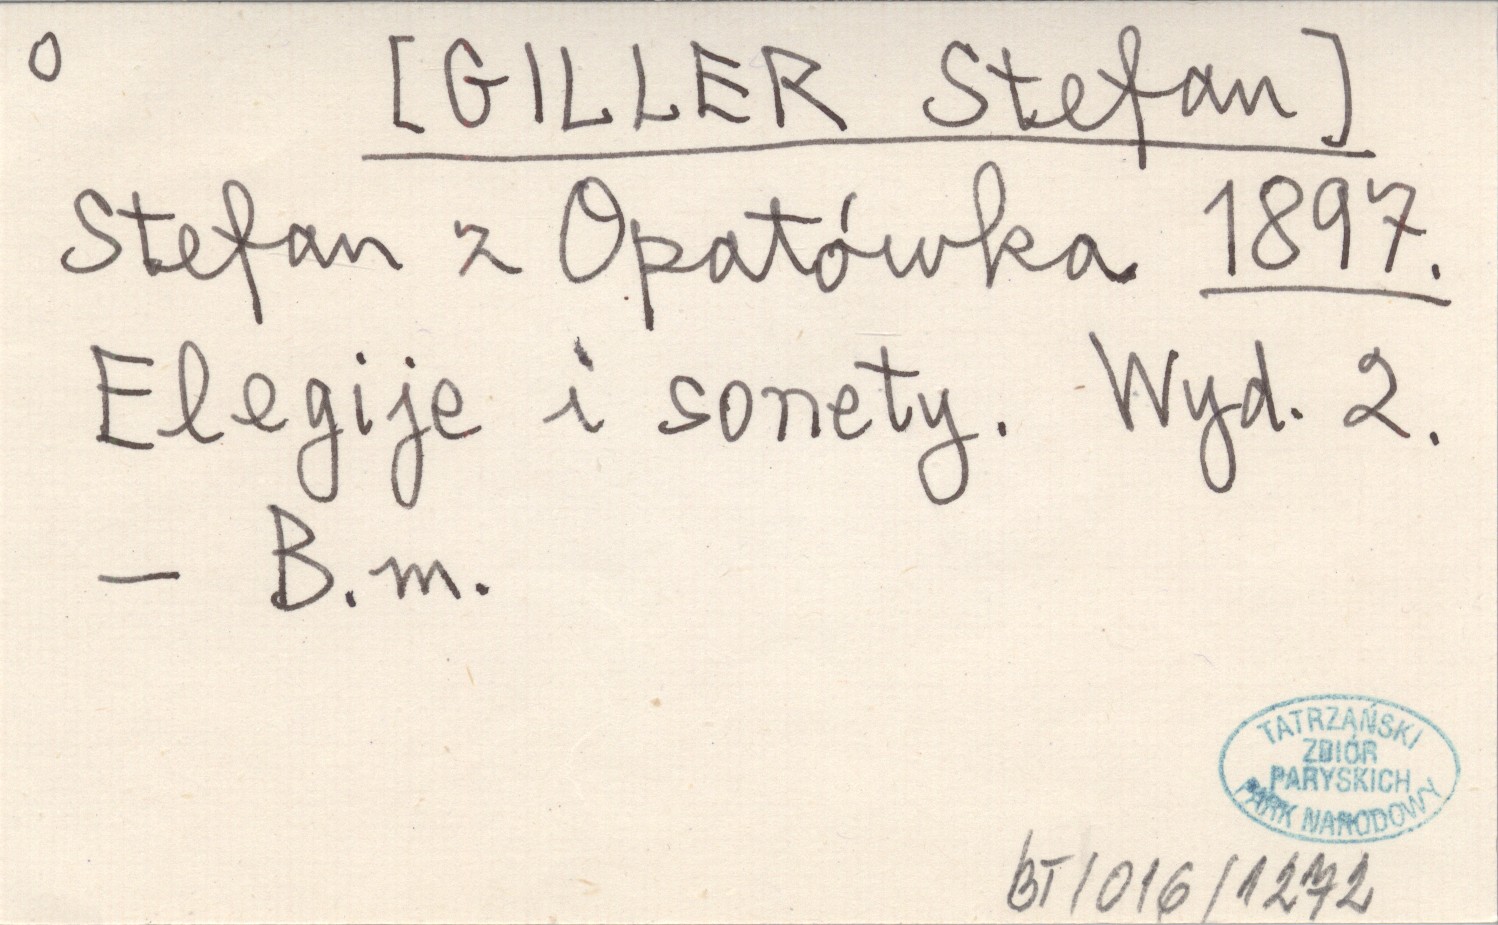 O
[GILLER Stefan]
Stefan z Opatówka 1897.
Elegije i sonety. Wyd. 2.
— B.m.
TATRZAŃSKI
ZBIÓR
PARYSKICH
PARK NARODOWY
BT/016/1272